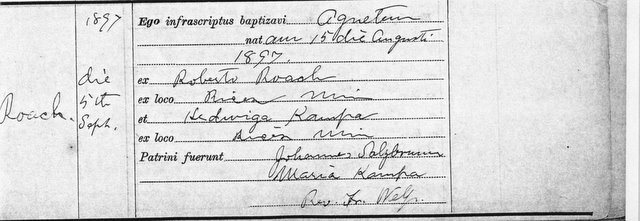 1897
die
5th
Sept.
Roach.
Ego infrascriptus baptizavi Agnetem
natam 15 die Augusti
1897.
ex Roberto Roach
ex loco Minn
et Hedwiga Kampa
ex loco Minn
Patrini fuerunt Johannes Salzbrunn
Maria Kampa
Rev. Fr.